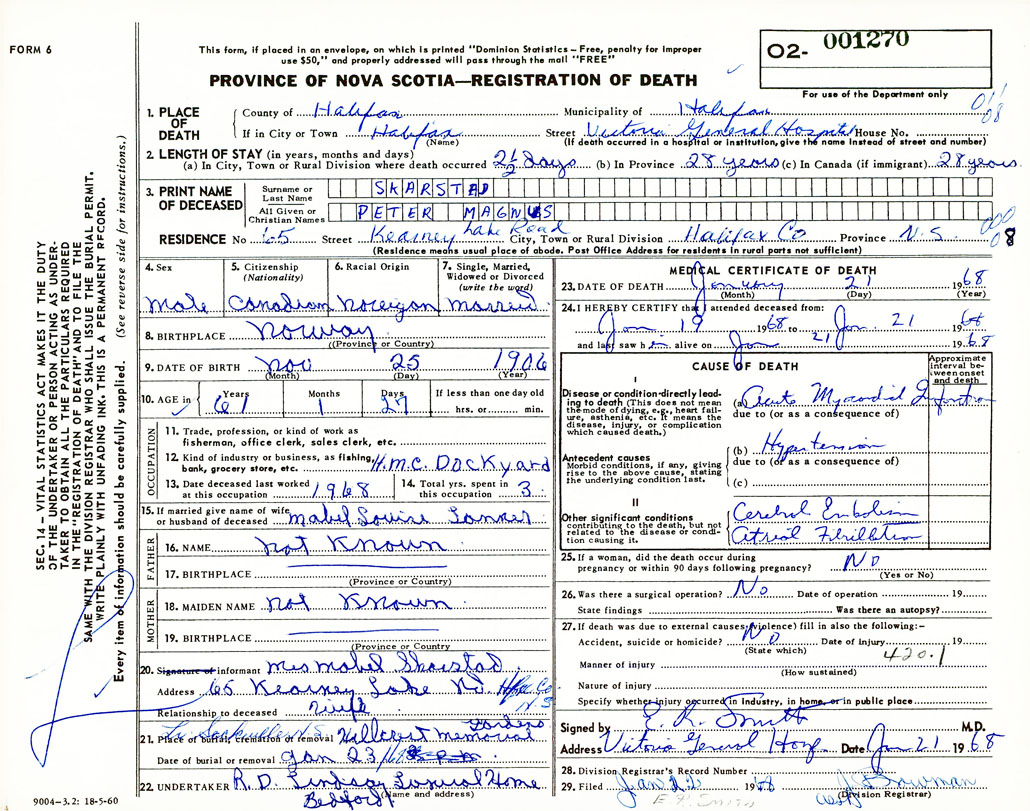 FORM 6
This form, if placed in an envelope, on which is printed "Dominion Statistics – Free, penalty for improper
use $50," and properly addressed will pass through the mail "FREE"
PROVINCE OF NOVA SCOTIA—REGISTRATION OF DEATH
O2- 001270
For use of the Department only
011
08
1. PLACE OF DEATH
County of Halifax Municipality of Halifax
If in City or Town Halifax Street Victoria General Hospital House No.
(Name) (If death occurred in a hospital or institution, give the name instead of street and number)
2. LENGTH OF STAY (in years, months and days)
(a) In City, Town or Rural Division where death occurred 2½ days (b) In Province 28 years (c) In Canada (if immigrant) 28 years
3. PRINT NAME OF DECEASED
Surname or Last Name SKARSTAD
All Given or Christian Names PETER MAGNUS
RESIDENCE No 65 Street Kearney Lake Road City, Town or Rural Division Halifax Co Province N.S.
(Residence means usual place of abode. Post Office Address for residents in rural parts not sufficient)
000
08
4. Sex
Male
5. Citizenship (Nationality)
Canadian
6. Racial Origin
Norwegan
7. Single, Married, Widowed or Divorced (write the word)
Married
8. BIRTHPLACE Norway
(Province or Country)
9. DATE OF BIRTH Nov 25 1906
(Month) (Day) (Year)
10. AGE in Years 61 Months 1 Days 27 If less than one day old
hrs. or min.
OCCUPATION
11. Trade, profession, or kind of work as
fisherman, office clerk, sales clerk, etc.
12. Kind of industry or business, as fishing,
bank, grocery store, etc. H.M.C. Dockyard
13. Date deceased last worked at this occupation 1968
14. Total yrs. spent in this occupation 3
15. If married give name of wife
or husband of deceased Mabel Louise
FATHER
16. NAME Not Known
17. BIRTHPLACE
(Province or Country)
MOTHER
18. MAIDEN NAME Not Known
19. BIRTHPLACE
(Province or Country)
20. Signature of informant Mrs Mabel Skarstad
Address 65 Kearney Lake Rd. Hfx Co N.S
Relationship to deceased Wife
Sackville N.S
21. Place of burial, cremation or removal Hillcrest Memorial Gardens
Date of burial or removal Jan 23/68
22. UNDERTAKER R.D. Lindsay Funeral Home
(Name and address)
Bedford
MEDICAL CERTIFICATE OF DEATH
23. DATE OF DEATH January 21 1968
(Month) (Day) (Year)
24. I HEREBY CERTIFY that I attended deceased from:
Jan 19 1968 to Jan. 21 1968
and last saw him alive on Jan 21 1968
CAUSE OF DEATH
Approximate interval between onset and death
I
Disease or condition directly leading to death (This does not mean the mode of dying, e.g., heart failure, asthenia, etc. It means the disease, injury, or complication which caused death.)
(a) Acute Myocardial Infarction
due to (or as a consequence of)
Antecedent causes
Morbid conditions, if any, giving rise to the above cause, stating the underlying condition last.
(b) Hypertension
due to (or as a consequence of)
(c)
II
Other significant conditions
contributing to the death, but not related to the disease or condition causing it.
Cerebral Embolism
Atrial Fibrillation
25. If a woman, did the death occur during
pregnancy or within 90 days following pregnancy? No
(Yes or No)
26. Was there a surgical operation? No Date of operation 19
State findings Was there an autopsy?
27. If death was due to external causes (violence) fill in also the following:–
Accident, suicide or homicide? No Date of injury 19
(State which)
420.1
Manner of injury
(How sustained)
Nature of injury
Specify whether injury occurred in industry, in home, or in public place
Signed by E. R. Smith M.D.
Address Victoria General Hosp Date Jan 21 1968
28. Division Registrar's Record Number
29. Filed Jan 22 1968 Bowman
(Division Registrar)
SEC. 14 – VITAL STATISTICS ACT MAKES IT THE DUTY
OF THE UNDERTAKER OR PERSON ACTING AS UNDER-
TAKER TO OBTAIN ALL THE PARTICULARS REQUIRED
IN THE "REGISTRATION OF DEATH" AND TO FILE THE
SAME WITH THE DIVISION REGISTRAR WHO SHALL ISSUE THE BURIAL PERMIT.
WRITE PLAINLY WITH UNFADING INK. THIS IS A PERMANENT RECORD.
Every item of information should be carefully supplied. (See reverse side for instructions.)
9004-3.2: 18-5-60